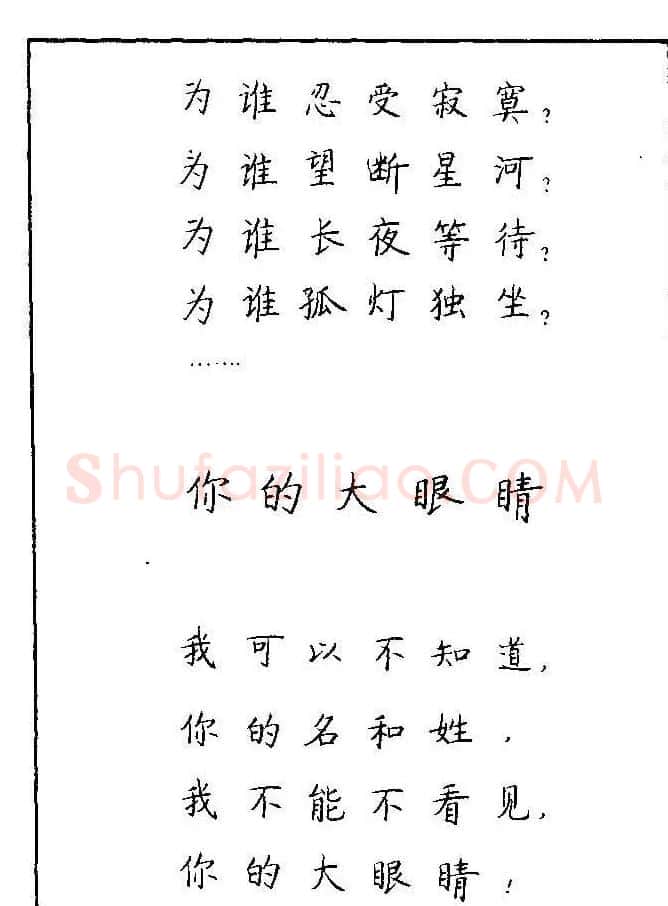 为谁忍受寂寞?
为谁望断星河?
为谁长夜等待?
为谁孤灯独坐?
.......
ShufaziliaoCOM
你的大眼睛
我可以不知道,
你的名和姓,
我不能不看见,
你的大眼睛!